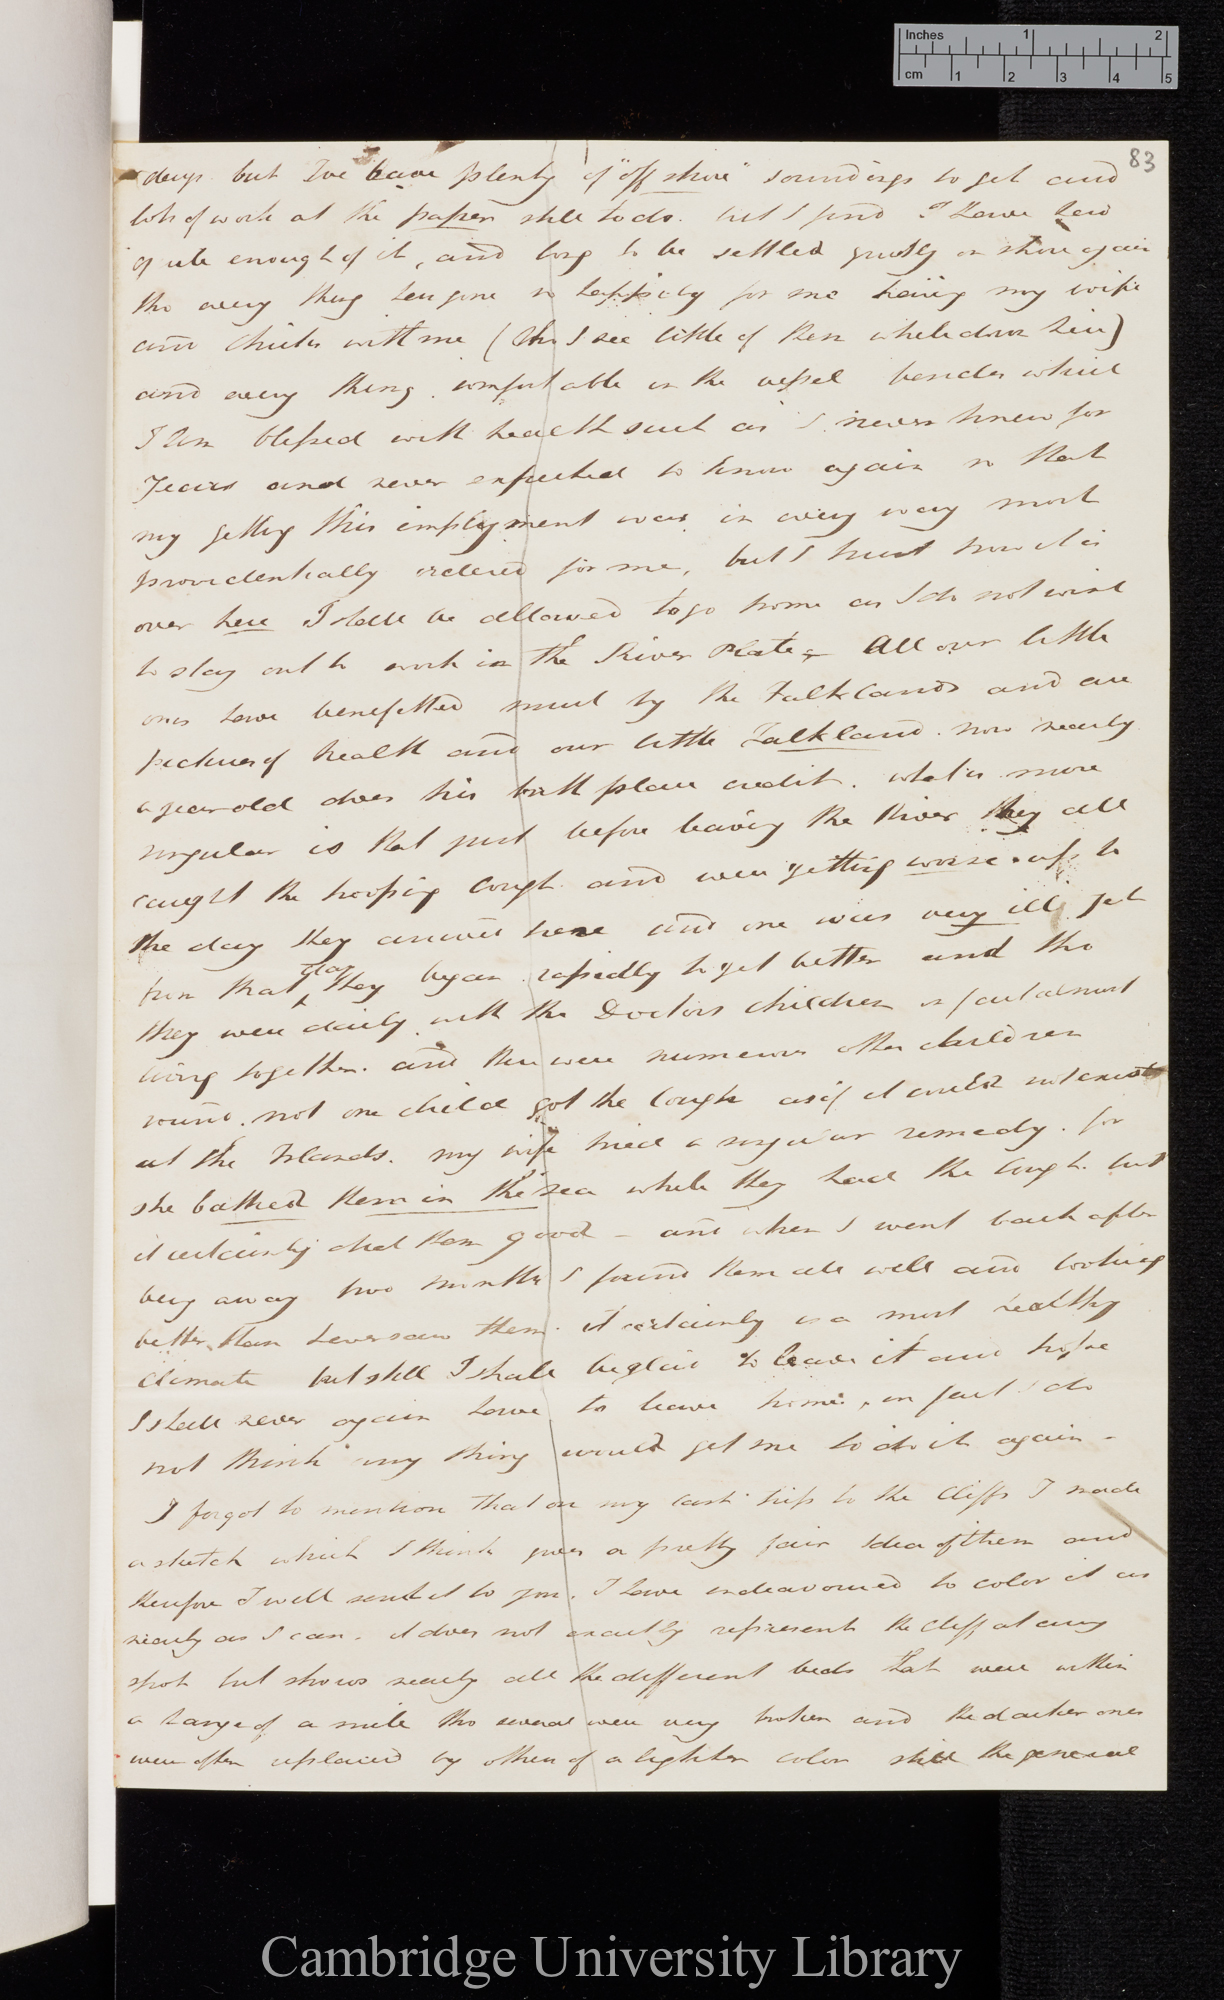 Inches 1 2
cm 1 2 3 4 5
83
days but I've have plenty of "off shore" soundings to get and
lots of work at the paper still to do. but I find I have had
quite enough of it, and long to be settled quietly on shore again
tho every thing has gone so happily for me having my wife
and childn with me (tho I see little of them while down here)
and every thing comfortable in the vessel besides which
I am blessed with health such as I never knew for
Years and never expected to know again so that
my getting this employment was in every way most
providentially ordered for me, but I trust now it is
over here I shall be allowed to go home as I do not wish
to stay out to work in the River Plate. All our little
ones have benefitted much by the Falklands and are
pictures of health and our little Falkland now nearly
a year old does his birth place credit. what is more
singular is that just before leaving the River they all
caught the hooping Cough and were getting worse up to
the day they arrived here and one was very ill yet
from that day they began rapidly to get better and tho
they were daily with the Doctors children in fact almost
living together. and there were numerous other children
round. not one child got the Cough as if it could not exist
at the Islands. my wife tried a singular remedy. for
she bathed them in the sea while they had the Cough. but
it certainly did them good - and when I went back after
being away two months I found them all well and looking
better than I ever saw them. it certainly is a most healthy
climate but still I shall be glad to leave it and hope
I shall never again have to leave home, in fact I do
not think any thing would get me to do it again -
I forgot to mention that on my last trip to the Cliffs I made
a sketch which I think gives a pretty fair Idea of them and
therefore I will send it to you. I have endeavoured to color it as
nearly as I can. it does not exactly represent the cliff at any
spot but shows nearly all the different beds that were within
a range of a mile tho several were very broken and the darker ones
were often replaced by others of a lighter color still the general
Cambridge University Library